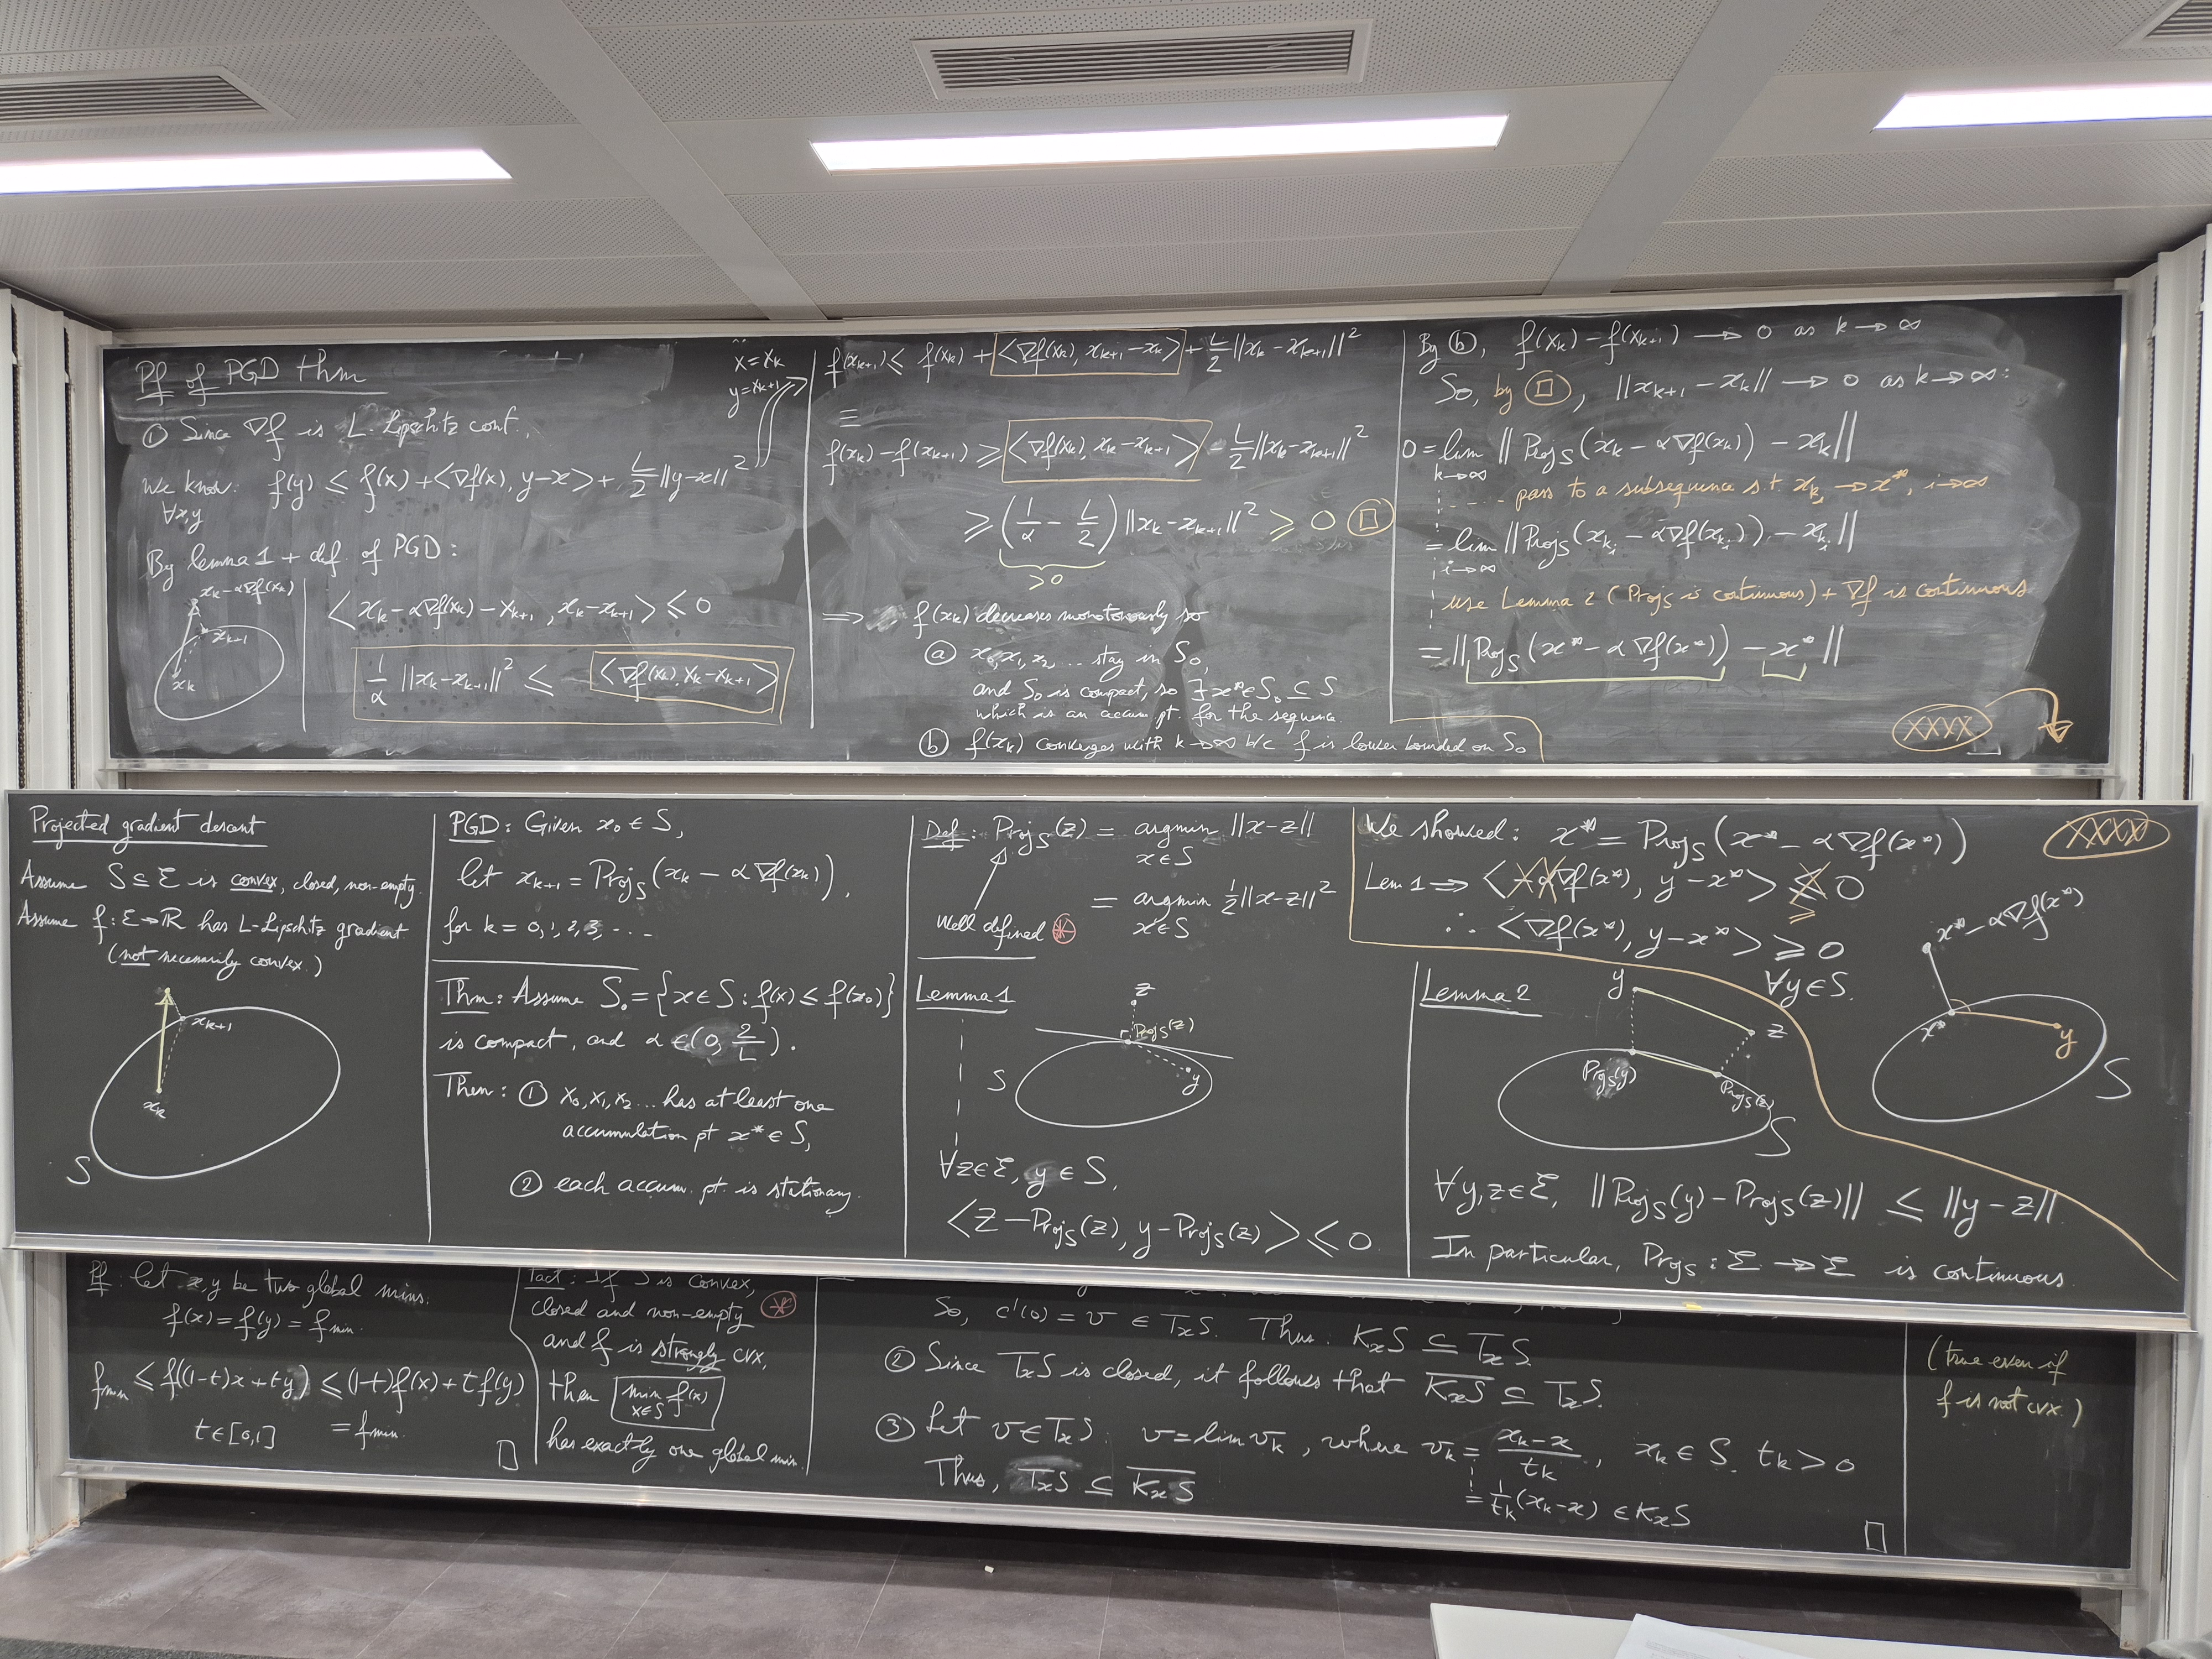 Pf of PGD thm
① Since ∇f is L-Lipschitz cont.,
We know: f(y) ≤ f(x) + <∇f(x), y-x> + L/2 ||y-x||²
∀x,y
x = xₖ
y = xₖ₊₁
By lemma 1 + def. of PGD:
xₖ - α∇f(xₖ)
xₖ₊₁
xₖ
<xₖ - α∇f(xₖ) - xₖ₊₁, xₖ - xₖ₊₁> ≤ 0
1/α ||xₖ - xₖ₊₁||² ≤ <∇f(xₖ), xₖ - xₖ₊₁>
f(xₖ₊₁) ≤ f(xₖ) + <∇f(xₖ), xₖ₊₁ - xₖ> + L/2 ||xₖ - xₖ₊₁||²
≡
f(xₖ) - f(xₖ₊₁) ≥ <∇f(xₖ), xₖ - xₖ₊₁> - L/2 ||xₖ - xₖ₊₁||²
≥ (1/α - L/2) ||xₖ - xₖ₊₁||² ≥ 0 □
> 0
⟹ f(xₖ) decreases monotonously so
ⓐ x₀, x₁, x₂ ... stay in S₀,
and S₀ is compact, so ∃ x* ∈ S₀ ⊆ S
which is an accum. pt. for the sequence.
ⓑ f(xₖ) converges with k → ∞ b/c f is lower bounded on S₀
By ⓑ, f(xₖ) - f(xₖ₊₁) → 0 as k → ∞
So, by □, ||xₖ₊₁ - xₖ|| → 0 as k → ∞:
0 = lim || Projs(xₖ - α∇f(xₖ)) - xₖ ||
k→∞
.... pass to a subsequence s.t. xₖᵢ → x*, i → ∞
= lim || Projs(xₖᵢ - α∇f(xₖᵢ)) - xₖᵢ ||
i→∞
use Lemma 2 (Projs is continuous) + ∇f is continuous
= || Projs(x* - α∇f(x*)) - x* ||
XXXX
Projected gradient descent
Assume S ⊆ ℰ is convex, closed, non-empty.
Assume f: ℰ → ℝ has L-Lipschitz gradient
(not necessarily convex.)
xₖ₊₁
xₖ
S
PGD: Given x₀ ∈ S,
let xₖ₊₁ = Projs(xₖ - α∇f(xₖ)),
for k = 0, 1, 2, 3, ...
Thm: Assume S₀ = {x ∈ S : f(x) ≤ f(x₀)}
is compact, and α ∈ (0, 2/L).
Then: ① x₀, x₁, x₂ ... has at least one
accumulation pt x* ∈ S,
② each accum. pt. is stationary.
Def: Projs(z) = argmin ||x - z||
x ∈ S
= argmin ½||x - z||²
x ∈ S
well defined ⊛
Lemma 1
z
Projs(z)
S
y
∀z ∈ ℰ, y ∈ S,
<z - Projs(z), y - Projs(z)> ≤ 0
We showed: x* = Projs(x* - α∇f(x*))
XXXX
Lem 1 ⟹ <-α∇f(x*), y - x*> ≤ 0
≥
∴ <∇f(x*), y - x*> ≥ 0
∀y ∈ S.
x* - α∇f(x*)
x*
y
S
Lemma 2
y
z
Projs(y)
Projs(z)
S
∀y,z ∈ ℰ, ||Projs(y) - Projs(z)|| ≤ ||y - z||.
In particular, Projs : ℰ → ℰ is continuous.
Pf: Let x, y be two global mins:
f(x) = f(y) = fmin.
fmin ≤ f((1-t)x + ty) ≤ (1-t)f(x) + t f(y)
t ∈ [0,1] = fmin.
□
Fact: If S is convex,
closed and non-empty ⊛
and f is strongly cvx,
then min f(x)
x∈S
has exactly one global min.
So, c'(0) = v ∈ TₓS. Thus: KₓS ⊆ TₓS.
② Since TₓS is closed, it follows that K̅ₓS̅ ⊆ TₓS.
③ Let v ∈ TₓS. v = lim vₖ, where vₖ = (xₖ - x)/tₖ, xₖ ∈ S. tₖ > 0
= 1/tₖ (xₖ - x) ∈ KₓS
Thus, TₓS ⊆ K̅ₓS̅
□
(true even if
f is not cvx.)